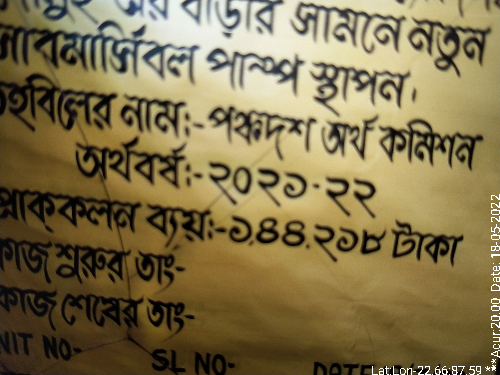 বাড়ীর সামনে নতুন
সাবমার্সিবল পাম্প স্থাপন।
তহবিলের নাম:-পঞ্চদশ অর্থ কমিশন
অর্থবর্ষ:-২০২১-২২
প্রাক্কলন ব্যয়:-১,৪৪,২১৮ টাকা
কাজ শুরুর তাং-
কাজ শেষের তাং-
NIT NO- SL NO- DATE
Lat Lon-22.66:87.59 ***Acur 20.00 Date: 18-05-2022